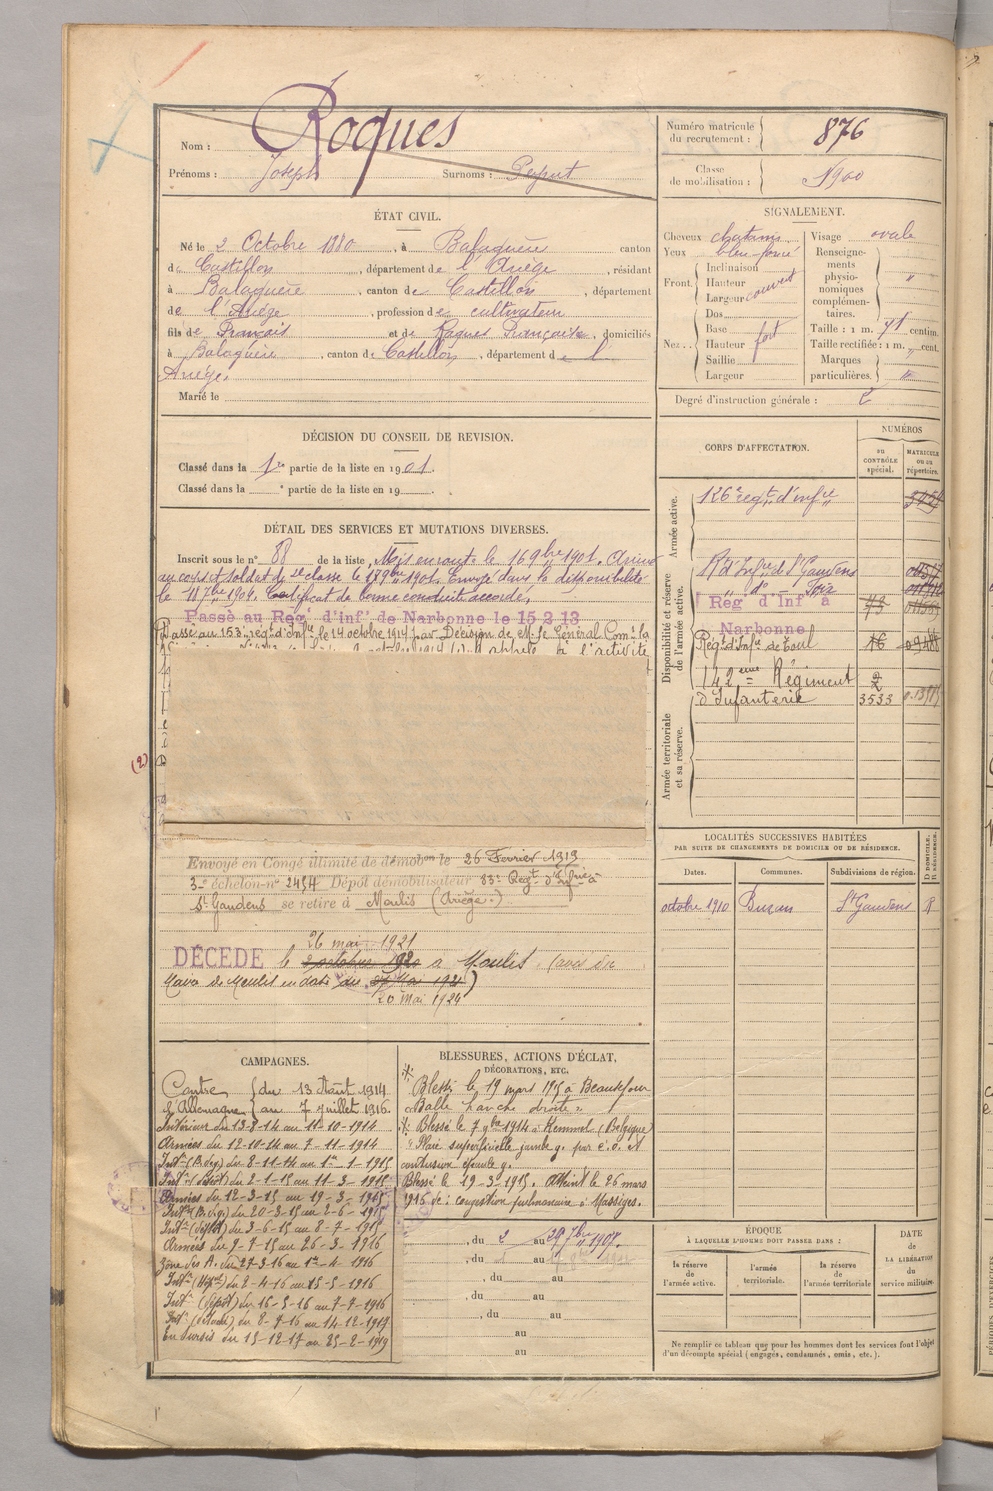 Nom : Roques
Prénoms : Joseph Surnoms :
Numéro matricule du recrutement : 876
Classe de mobilisation : 1900
ÉTAT CIVIL.
Né le 2 Octobre 1880, à Balaguère canton
de Castillon, département de l'Ariège, résidant
à Balaguère, canton de Castillon, département
de l'Ariège, profession de cultivateur
fils de Français et de Roques Françoise, domiciliés
à Balaguère, canton de Castillon, département de l'
Ariège.
Marié le
SIGNALEMENT.
Cheveux chatains
Yeux bleu-foncé
Front. Inclinaison
Hauteur
Largeur couvert
Nez.. Dos
Base
Hauteur fort
Saillie
Largeur
Visage ovale
Renseignements physionomiques complémentaires. "
Taille : 1 m. 71 centim.
Taille rectifiée : 1 m. " cent.
Marques particulières. "
Degré d'instruction générale : 2
DÉCISION DU CONSEIL DE REVISION.
Classé dans la 1re partie de la liste en 1901.
Classé dans la e partie de la liste en 19
DÉTAIL DES SERVICES ET MUTATIONS DIVERSES.
Inscrit sous le n° 88 de la liste, Mis en route le 16 9bre 1901. Arrivé
au corps et soldat de 2e classe le 17 9bre 1901. Envoyé dans la disponibilité
le 18 7bre 1904. Certificat de bonne conduite accordé.
Passé au Rég. d'inf. de Narbonne le 15 2 13
Passé au 153e regt d'Infie le 14 octobre 1914 par Décision de M. le Général Comt la
appelé à l'activité
(2)
Envoyé en Congé illimité de démobon le 26 Fevrier 1919
3e échelon n° 2454 Dépôt démobilisateur 83e Regt d'Infrie à
St Gaudens se retire à Moulis (Ariège.)
26 mai 1921
DÉCÉDÉ le 2 octobre 1920 à Moulis (avis du
Maire de Moulis en date du 27 Mai 1921)
20 Mai 1924
CORPS D'AFFECTATION.
NUMÉROS
AU CONTRÔLE spécial.
MATRICULE OU AU répertoire.
Armée active.
126e regt d'infie
Disponibilité et réserve de l'armée active.
R. d'Infie de St Gaudens
do
Rég. d'Inf. à Narbonne
Regt d'Infie de Toul 16
142eme Régiment 2
d'Infanterie 3533
Armée territoriale et sa réserve.
LOCALITÉS SUCCESSIVES HABITÉES
PAR SUITE DE CHANGEMENTS DE DOMICILE OU DE RÉSIDENCE.
Dates. Communes. Subdivisions de région. D DOMICILE. R RÉSIDENCE.
octobre 1910 Buzan St Gaudens R
CAMPAGNES.
Contre l'Allemagne { du 13 Août 1914
au 7 juillet 1916.
Intérieur du 13-8-14 au 11-10-1914
Armées du 12-10-14 au 7-11-1914
Intr (B. dep) du 8-11-14 au 1er-1-1915
Intr (dépôt) du 2-1-15 au 11-3-1915
Armées du 12-3-15 au 19-3-1915
Intr du 20-3-15 au 2-6-1915
Intr (dépôt) du 3-6-15 au 8-7-1915
Armées du 9-7-15 au 26-3-1916
Zone des A. du 27-3-16 au 1er-4-1916
Intr (Hôp) du 2-4-16 au 15-5-1916
Intr (dépôt) du 16-5-16 au 7-7-1916
Intr du 8-7-16 au 14-12-1917
En sursis du 15-12-17 au 25-2-1919
BLESSURES, ACTIONS D'ÉCLAT,
DÉCORATIONS, ETC.
Blessé le 19 mars 1915 à Beauséjour
"Balle hanche droite".
Blessé le 7 9bre 1914 à Kemmel (Belgique
"Plaie superficielle jambe g. par é.o. et
contusion épaule g.
Blessé le 19-3-1915. Atteint le 26 mars
1916 de : congestion pulmonaire à Massiges.
, du 2 au 29 7bre 1907.
, du au
, du au
, du au
, du au
au
au
ÉPOQUE
À LAQUELLE L'HOMME DOIT PASSER DANS :
la réserve de l'armée active.
l'armée territoriale.
la réserve de l'armée territoriale
DATE de LA LIBÉRATION du service militaire.
Ne remplir ce tableau que pour les hommes dont les services font l'objet
d'un décompte spécial (engagés, condamnés, omis, etc.).